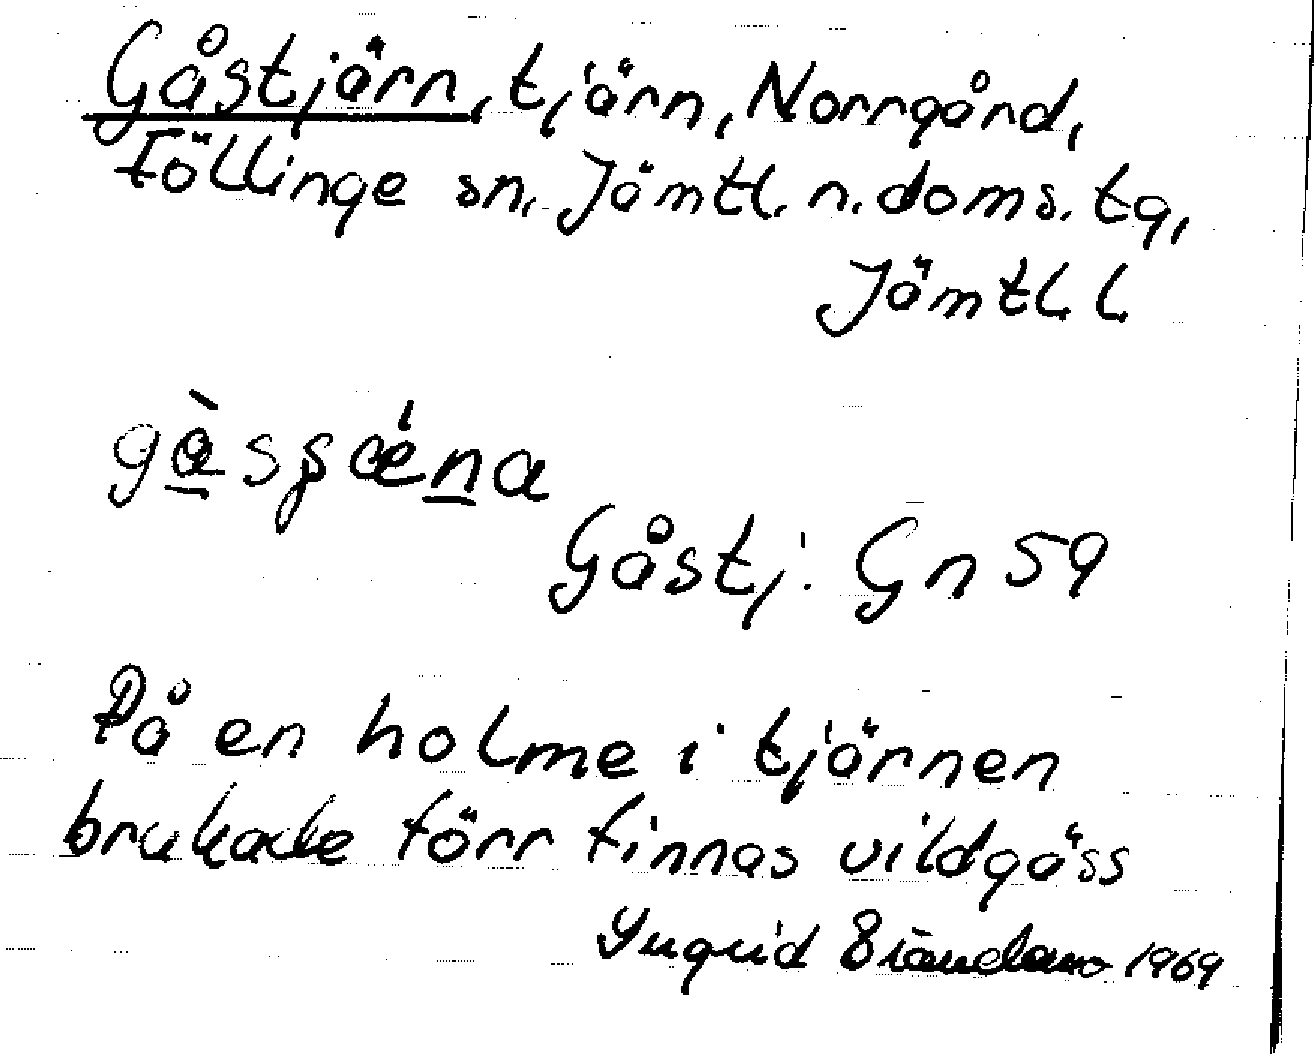 Gåstjärn, tjärn, Norrgård,
Föllinge sn, Jämtl. n. doms. tg,
Jämtl. l.
Gåstj: Gn 59
På en holme i tjärnen
brukade förr finnas vildgäss
Ingrid 1969